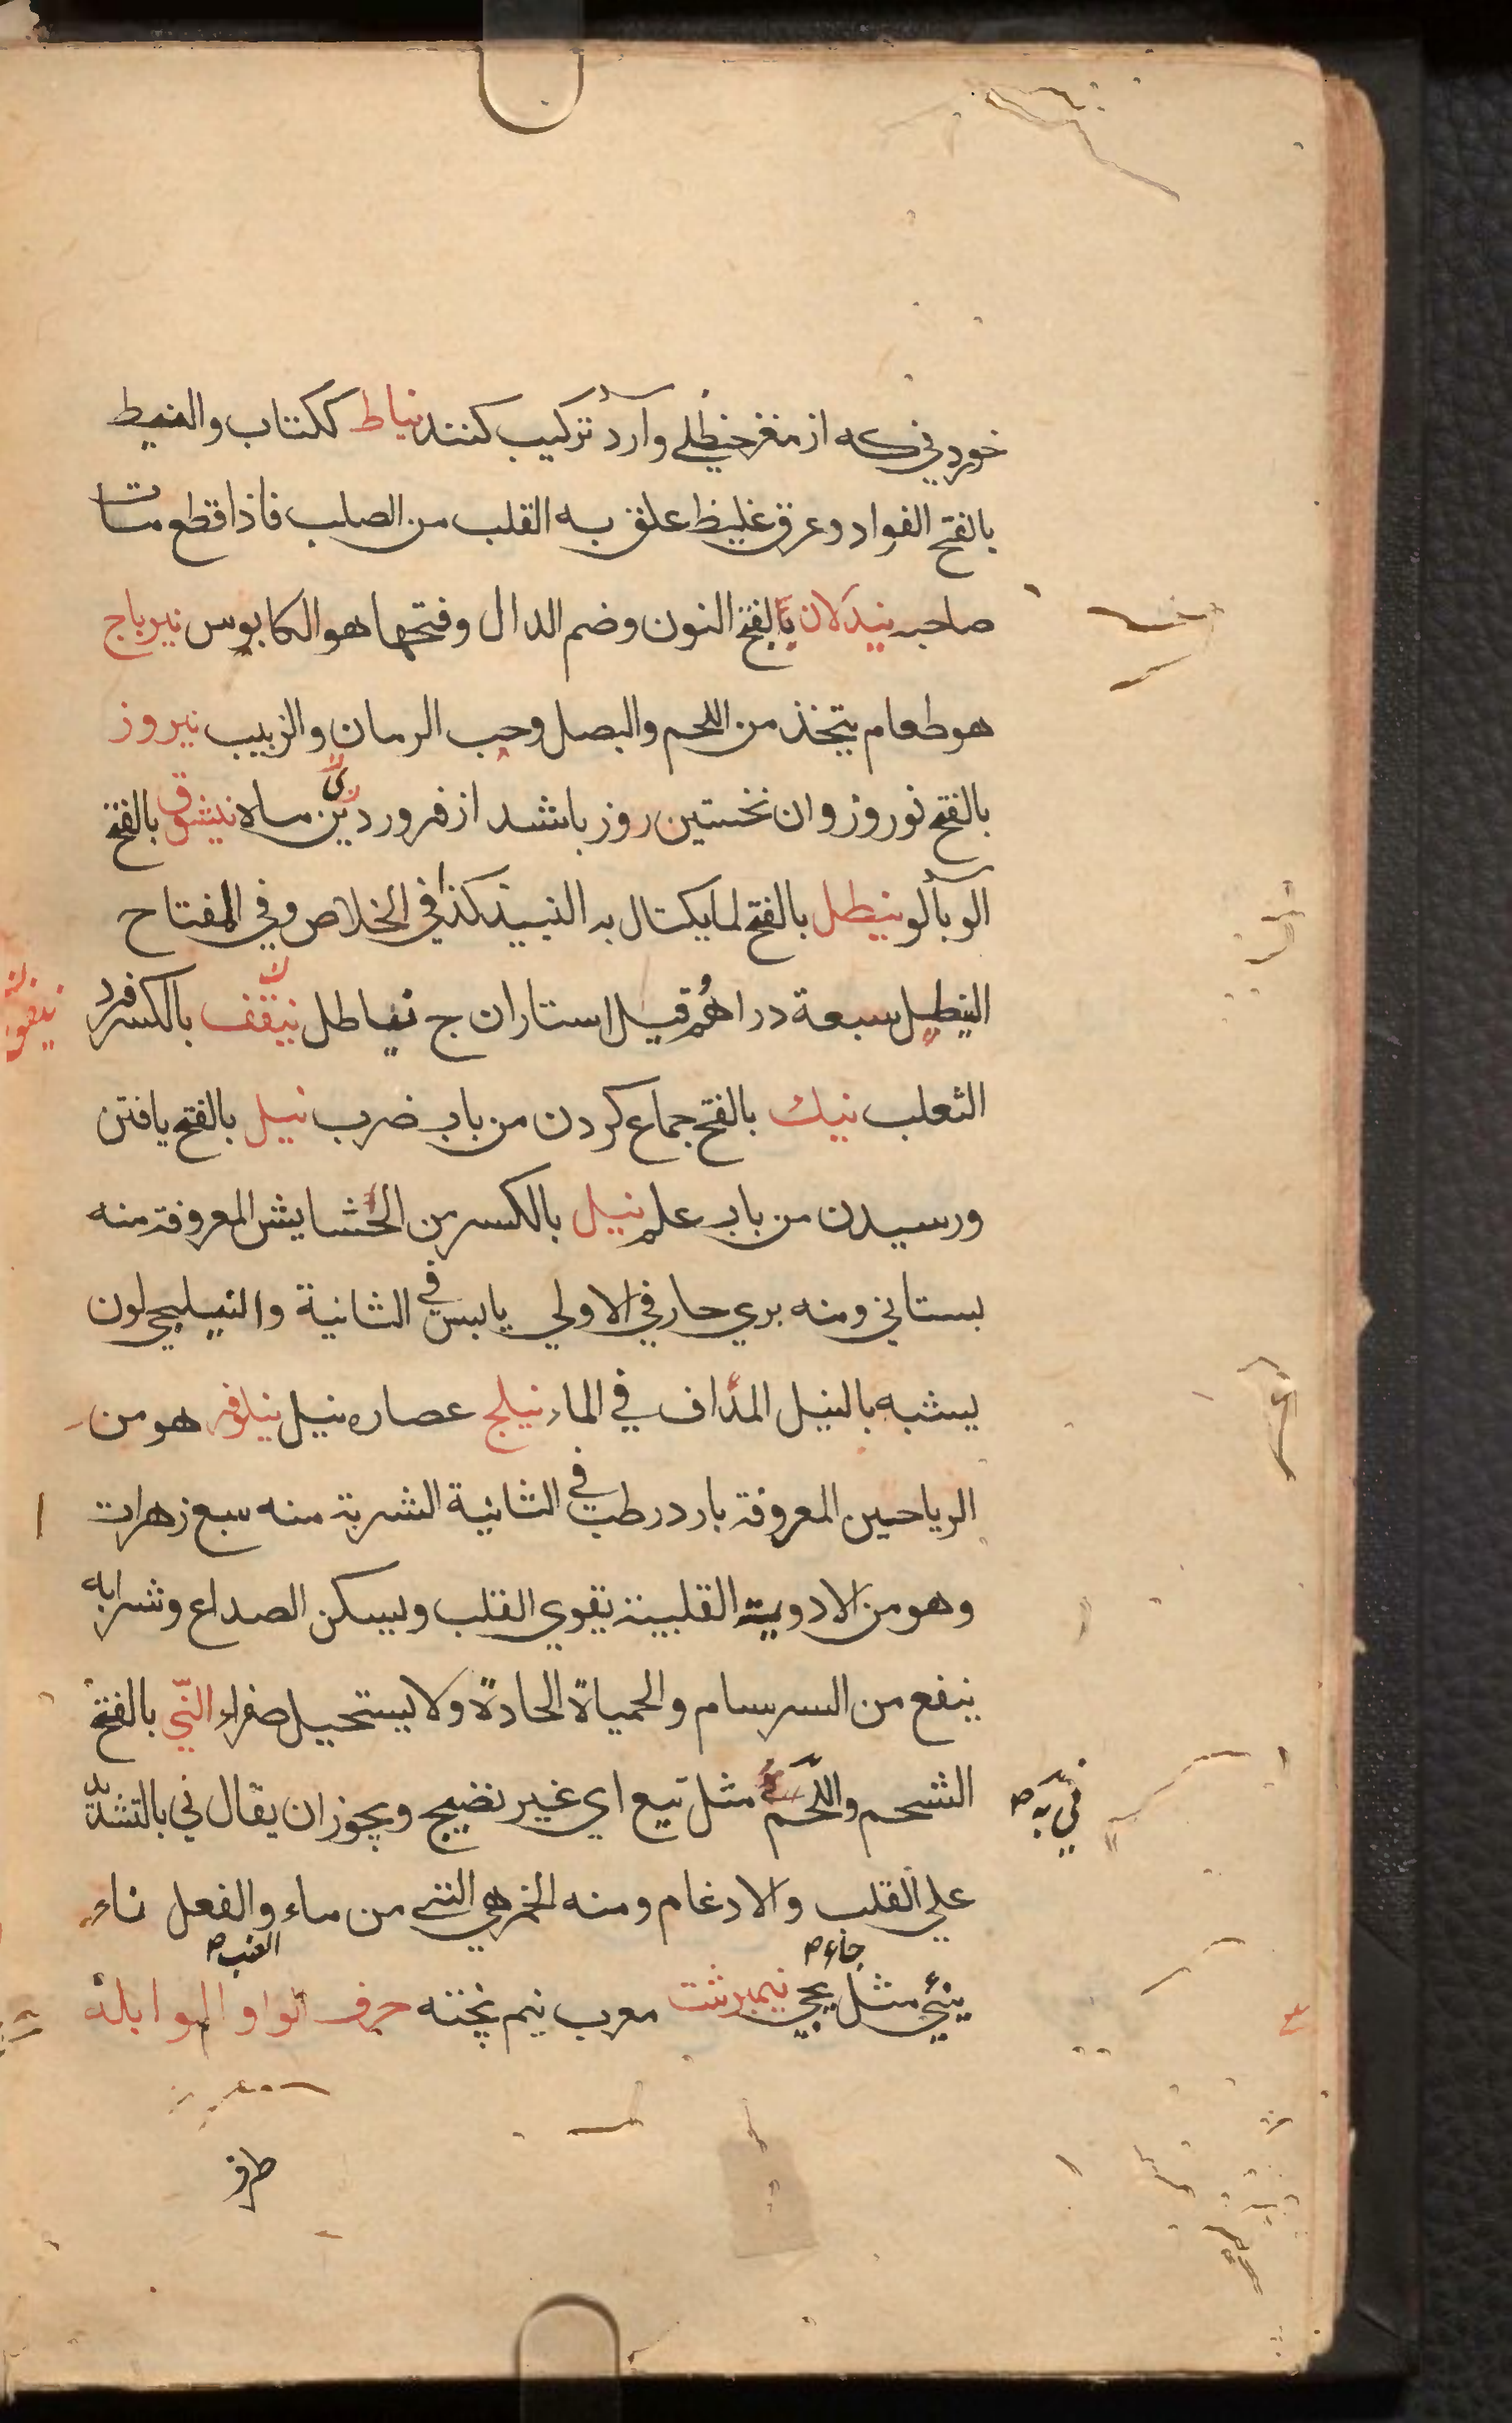 خوردني كه از مغز حنظلے وآرد تركيب كنند نياط ككتاب والنيط
بالفتح الفواد وعرق غليظ علق به القلب من الصلب فاذا قطع مات
صاحبه نيدلان بالفتح النون وضم الدال وفتحها هو الكابوس نيرباج
هو طعام يتخذ من اللحم والبصل وحب الرمان والزبيب نيروز
بالفتح نوروز وان نخستين روز باشد از فروردين ماه نيشوق بالفتح
آلو بآلو نيطل بالفتح لما يكتال به النبيذ كذا في الخلاص وفي المفتاح
النيطل سبعة دراهم قيل استاران ج نياطل نيقف بالكسر فرد
الثعلب نيك بالفتح جماع كردن من باب ضرب نيل بالفتح يافتن
ورسيدن من باب علم نيل بالكسر من الحشايش المعروفة منه
بستاني ومنه بري حار في الاولي يابس في الثانية والنيلجي لون
يشبه بالنيل المداف في الماء نيلج عصاره نيل نيلوفر هو من
الرياحين المعروفة بارد رطب في الثانية الشربة منه سبع زهرات
وهو من الادوية القلبية يقوي القلب ويسكن الصداع وشرابه
ينفع من السرسام والحمياة الحادة ولا يستحيل صفراء النّي بالفتح
الشحم واللحم مثل نيع اي غير نضيج ويجوز ان يقال ني بالتشديد
علي القلب والادغام ومنه الخمر هي النئ من ماء والفعل ناء
العنب ص
جاء ص
ينئي مثل يجئ نيمبرشت معرب نيم پخته حرف الواو الوابلة
طرف